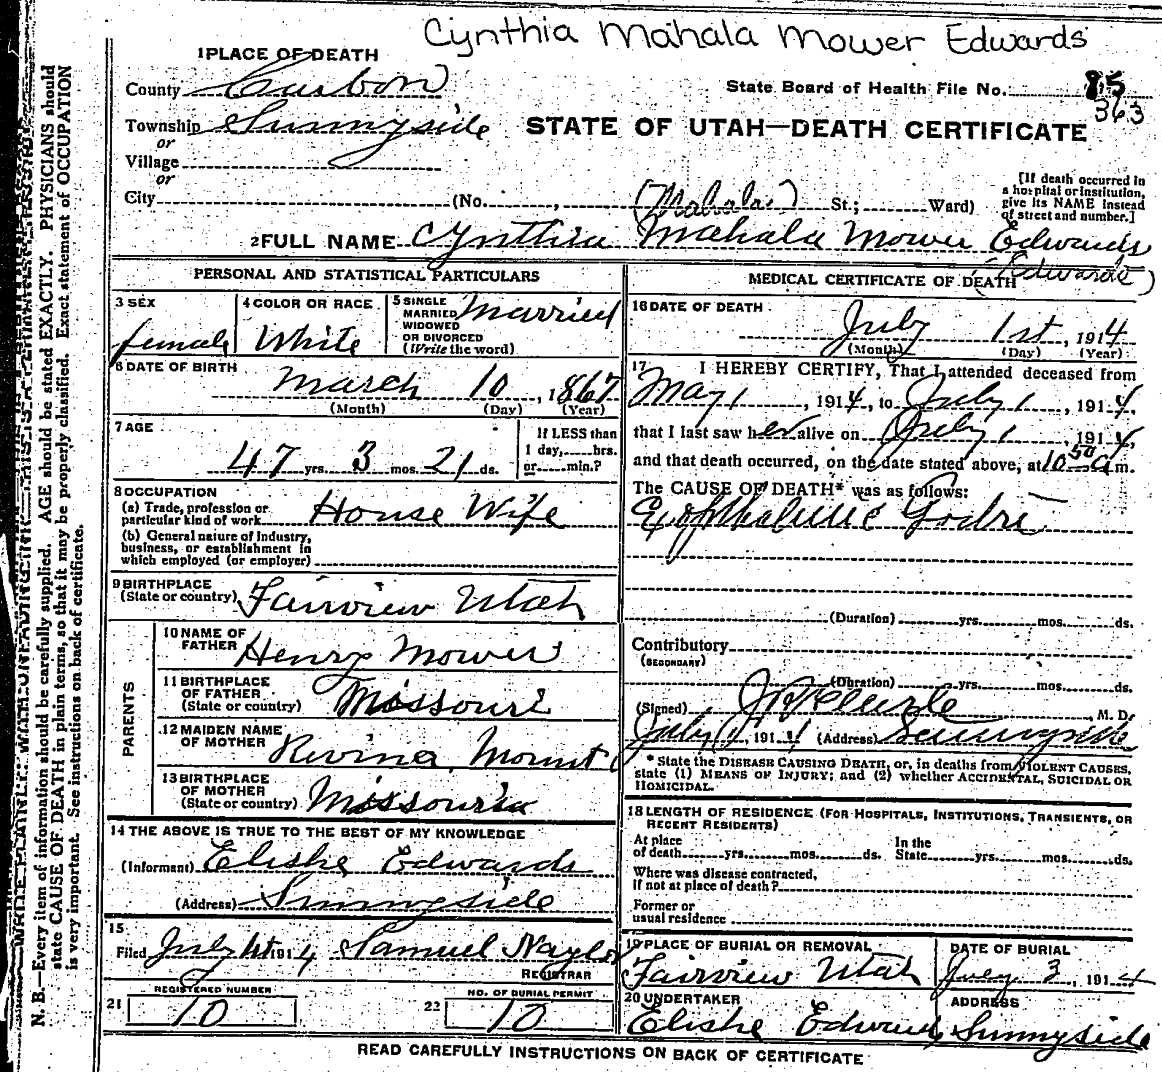 Cynthia Mahala Mower Edwards
1 PLACE OF DEATH
County Carbon
State Board of Health File No. 85
363
Township Sunnyside
or
STATE OF UTAH—DEATH CERTIFICATE
Village
or
City (No. , St.; Ward)
(Mahala)
[If death occurred in
a hospital or institution,
give its NAME instead
of street and number.]
2 FULL NAME Cynthia Mahala Mower Edwards
(Edwards)
PERSONAL AND STATISTICAL PARTICULARS
3 SEX
female
4 COLOR OR RACE
White
5 SINGLE
MARRIED
WIDOWED
OR DIVORCED
(Write the word)
Married
6 DATE OF BIRTH
March 10, 1867
(Month) (Day) (Year)
7 AGE
47 yrs. 3 mos. 21 ds.
If LESS than
1 day, hrs.
or min.?
8 OCCUPATION
(a) Trade, profession or
particular kind of work House Wife
(b) General nature of Industry,
business, or establishment in
which employed (or employer)
9 BIRTHPLACE
(State or country) Fairview Utah
PARENTS
10 NAME OF
FATHER Henry Mower
11 BIRTHPLACE
OF FATHER
(State or country) Missouri
12 MAIDEN NAME
OF MOTHER
13 BIRTHPLACE
OF MOTHER
(State or country)
14 THE ABOVE IS TRUE TO THE BEST OF MY KNOWLEDGE
(Informant) Elishe Edwards
(Address) Sunnyside
15
Filed July 1st 1914 Samuel Naylor
REGISTRAR
21 REGISTERED NUMBER
10
22 NO. OF BURIAL PERMIT
10
MEDICAL CERTIFICATE OF DEATH
16 DATE OF DEATH
July 1st, 1914
(Month) (Day) (Year)
17 I HEREBY CERTIFY, That I attended deceased from
May 1, 1914, to July 1, 1914,
that I last saw her alive on July 1, 1914,
and that death occurred, on the date stated above, at 10 50 a m.
The CAUSE OF DEATH* was as follows:
(Duration) yrs. mos. ds.
Contributory
(SECONDARY)
(Duration) yrs. mos. ds.
(Signed) , M. D.
July 1, 1914 (Address) Sunnyside
* State the DISEASE CAUSING DEATH, or, in deaths from VIOLENT CAUSES,
state (1) MEANS OF INJURY; and (2) whether ACCIDENTAL, SUICIDAL OR
HOMICIDAL.
18 LENGTH OF RESIDENCE (FOR HOSPITALS, INSTITUTIONS, TRANSIENTS, OR
RECENT RESIDENTS)
At place
of death yrs. mos. ds.
In the
State yrs. mos. ds.
Where was disease contracted,
if not at place of death?
Former or
usual residence
19 PLACE OF BURIAL OR REMOVAL
Fairview Utah
DATE OF BURIAL
July 3, 1914
20 UNDERTAKER
Elishe Edwards
ADDRESS
Sunnyside
READ CAREFULLY INSTRUCTIONS ON BACK OF CERTIFICATE
N. B.—Every item of information should be carefully supplied. AGE should be stated EXACTLY. PHYSICIANS should
state CAUSE OF DEATH in plain terms, so that it may be properly classified. Exact statement of OCCUPATION
is very important. See instructions on back of certificate.